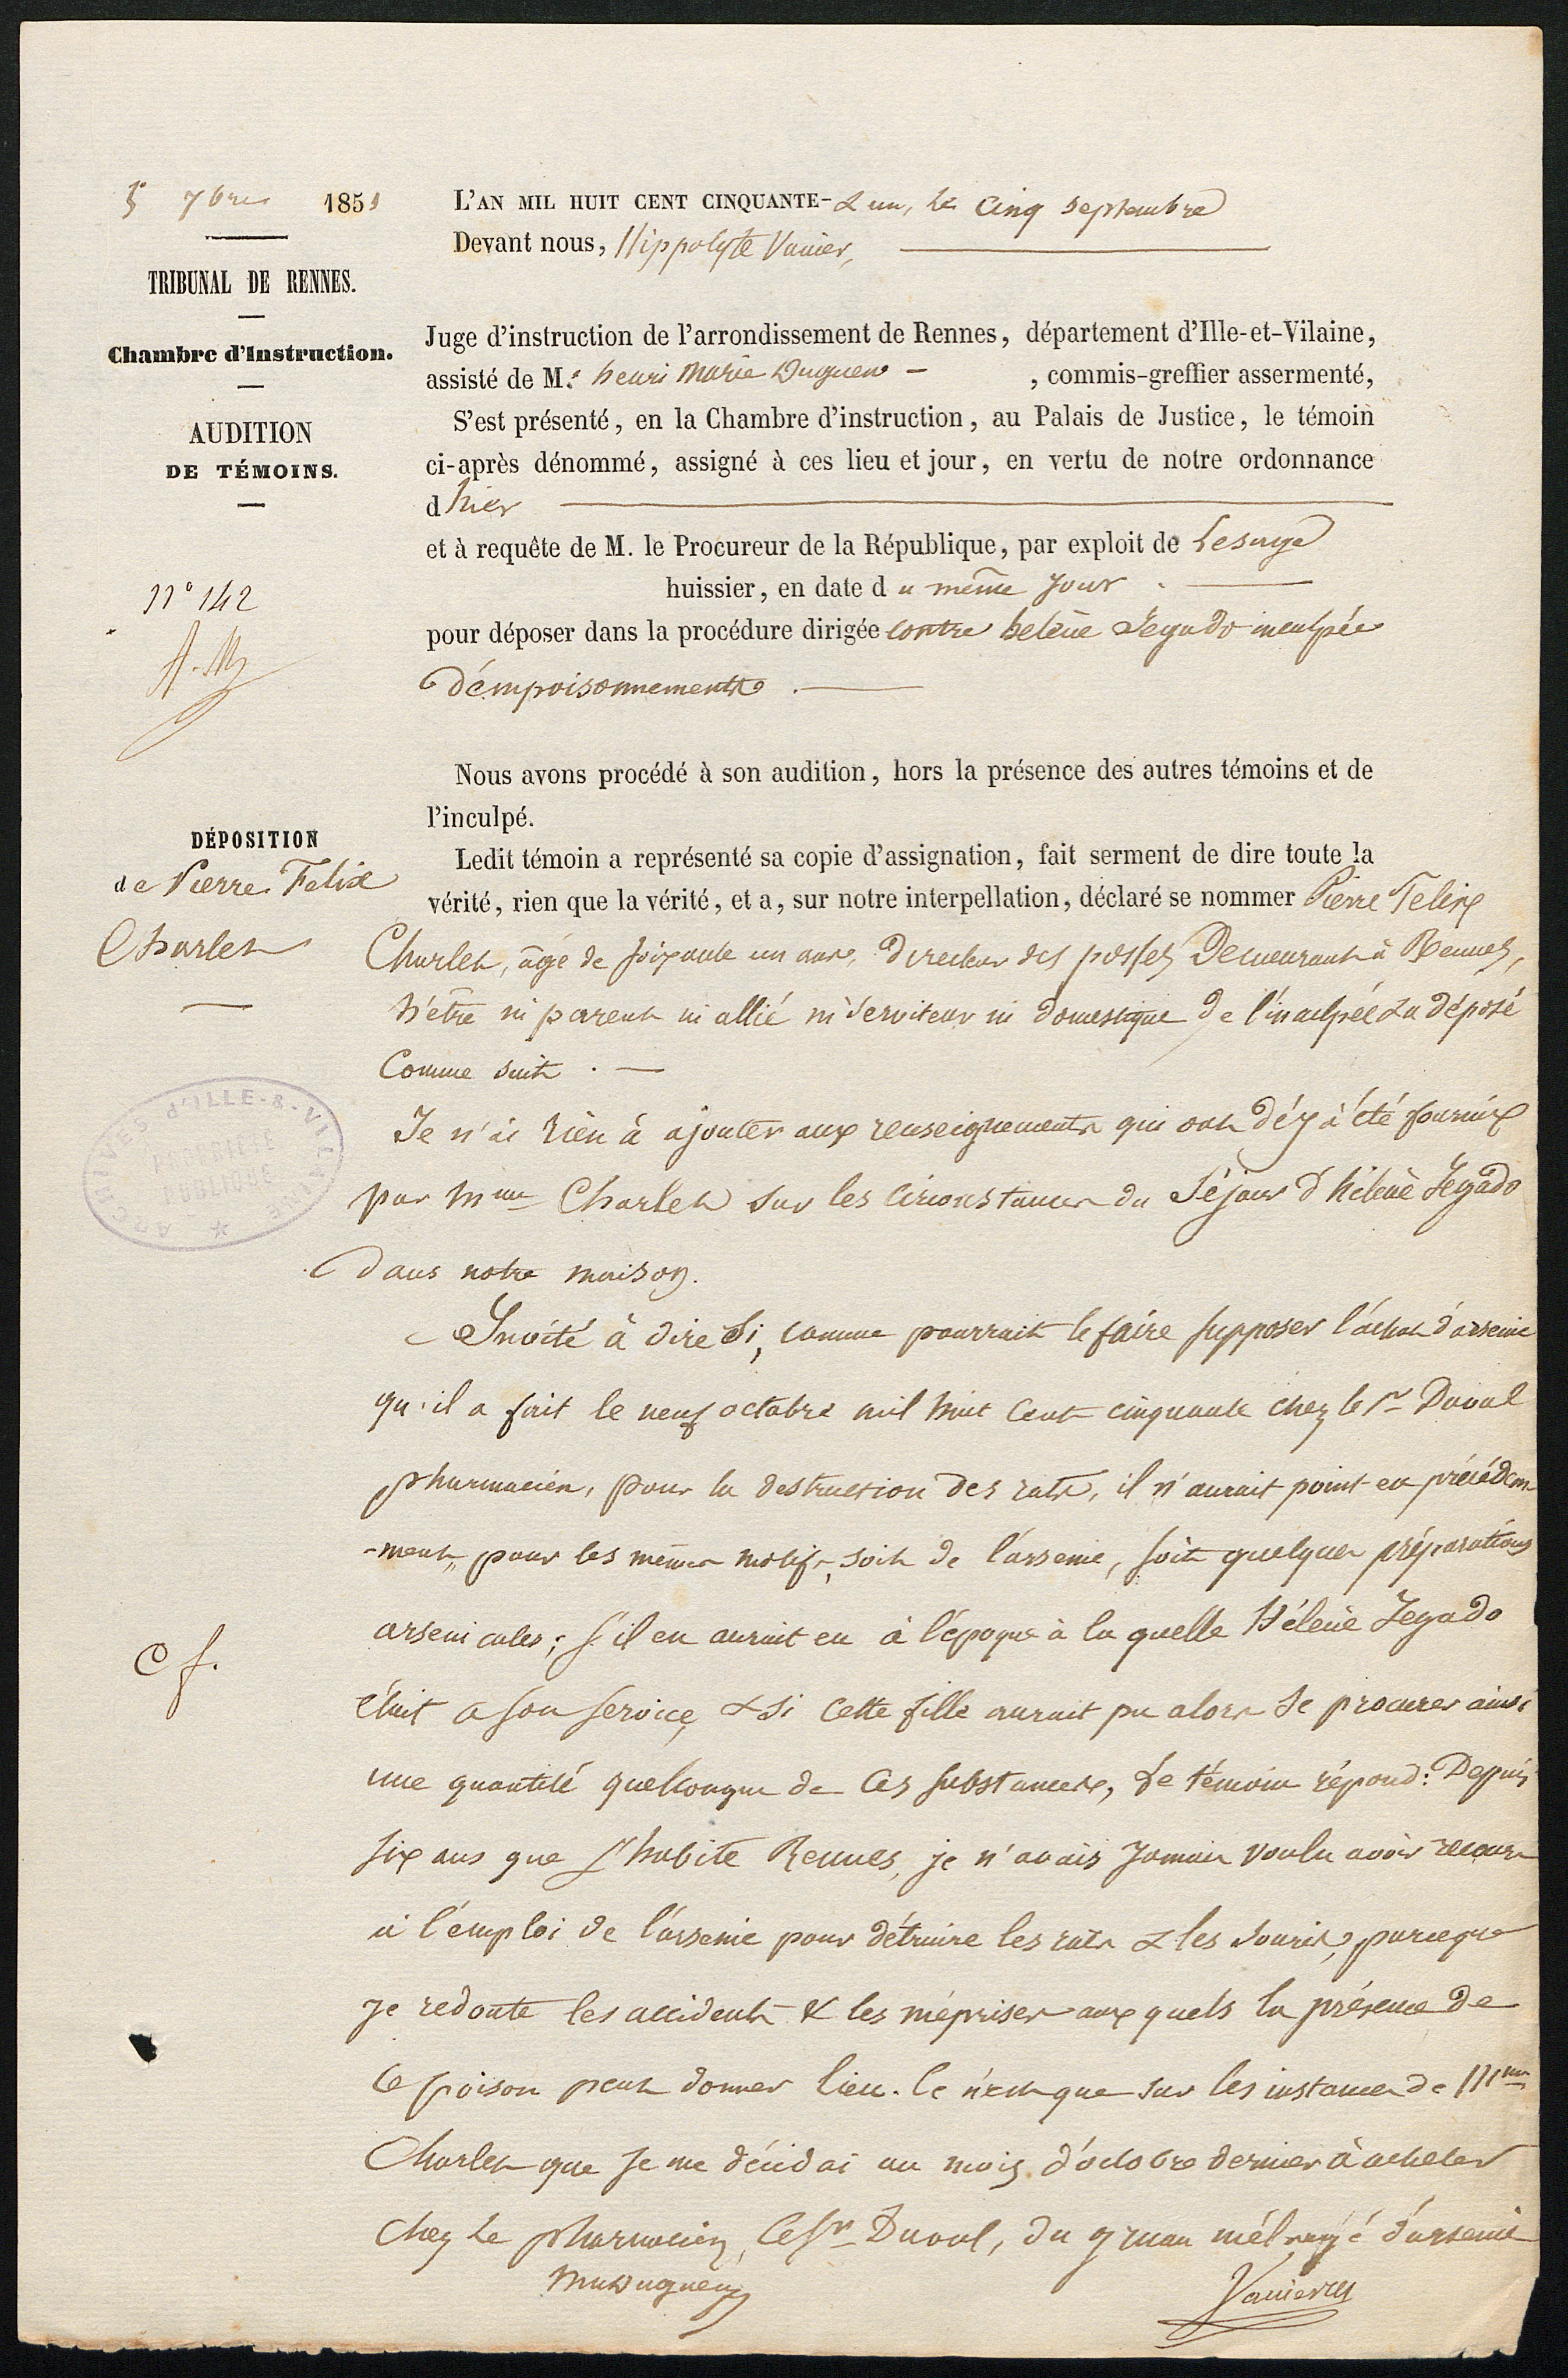 5 7bre 1851
TRIBUNAL DE RENNES.
Chambre d'Instruction.
AUDITION
DE TÉMOINS.
n° 142
DÉPOSITION
de Pierre Felix
Charlet
Cf.
L'AN MIL HUIT CENT CINQUANTE-& un, le cinq septembre
Devant nous, Hippolyte Vanier,
Juge d'instruction de l'arrondissement de Rennes, département d'Ille-et-Vilaine,
assisté de Me henri Marie Duguen - , commis-greffier assermenté,
S'est présenté, en la Chambre d'instruction, au Palais de Justice, le témoin
ci-après dénommé, assigné à ces lieu et jour, en vertu de notre ordonnance
d hier
et à requête de M. le Procureur de la République, par exploit de Lesage
huissier, en date du même jour .
pour déposer dans la procédure dirigée contre heleine Jegado inculpée
d'empoisonnements .
Nous avons procédé à son audition, hors la présence des autres témoins et de
l'inculpé.
Ledit témoin a représenté sa copie d'assignation, fait serment de dire toute la
vérité, rien que la vérité, et a, sur notre interpellation, déclaré se nommer Pierre Felix
Charlet, âgé de soixante un ans, directeur des postes Demeurant à Rennes,
n'être ni parent ni allié ni serviteur ni domestique de l'inculpée & a déposé
comme suit . —
Je n'ai rien à ajouter aux renseignements qui ont déjà été fournix
par Mme Charlet sur les circonstances du séjour d'hélène Jegado
dans notre maison.
Invité à dire si, comme pourrait le faire supposer l'achat d'arsenic
qu'il a fait le neuf octobre mil huit cent cinquante chez le Sr Duval
pharmacien, pour la destruction des rats, il n'aurait point eu précédem
-ment, pour les mêmes motifs, soit de l'arsenic, soit quelques préparations
arsenicales; s'il en aurait eu à l'époque à la quelle Hélène Jegado
était à son service, & si cette fille aurait pu alors se procurer ainsi
une quantité quelconque de ces substances, Le témoin répond: Depuis
six ans que j'habite Rennes, je n'avais jamais voulu avoir recours
à l'emploi de l'arsenic pour détruire les rats & les souris, parceque
je redoute les accidents & les méprises aux quels la présence de
ce poison peut donner lieu. Ce n'est que sur les instances de Mme
Charlet que je me décidai au mois d'octobre dernier à acheter
chez le pharmacien, le Sr Duval, du gruau mélangé d'arsenic
Duguen
Vanier
ARCHIVES d'ILLE-&-VILAINE
PROPRIÉTÉ
PUBLIQUE